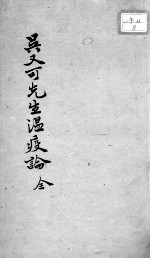 吳又可先生溫疫論 全
8